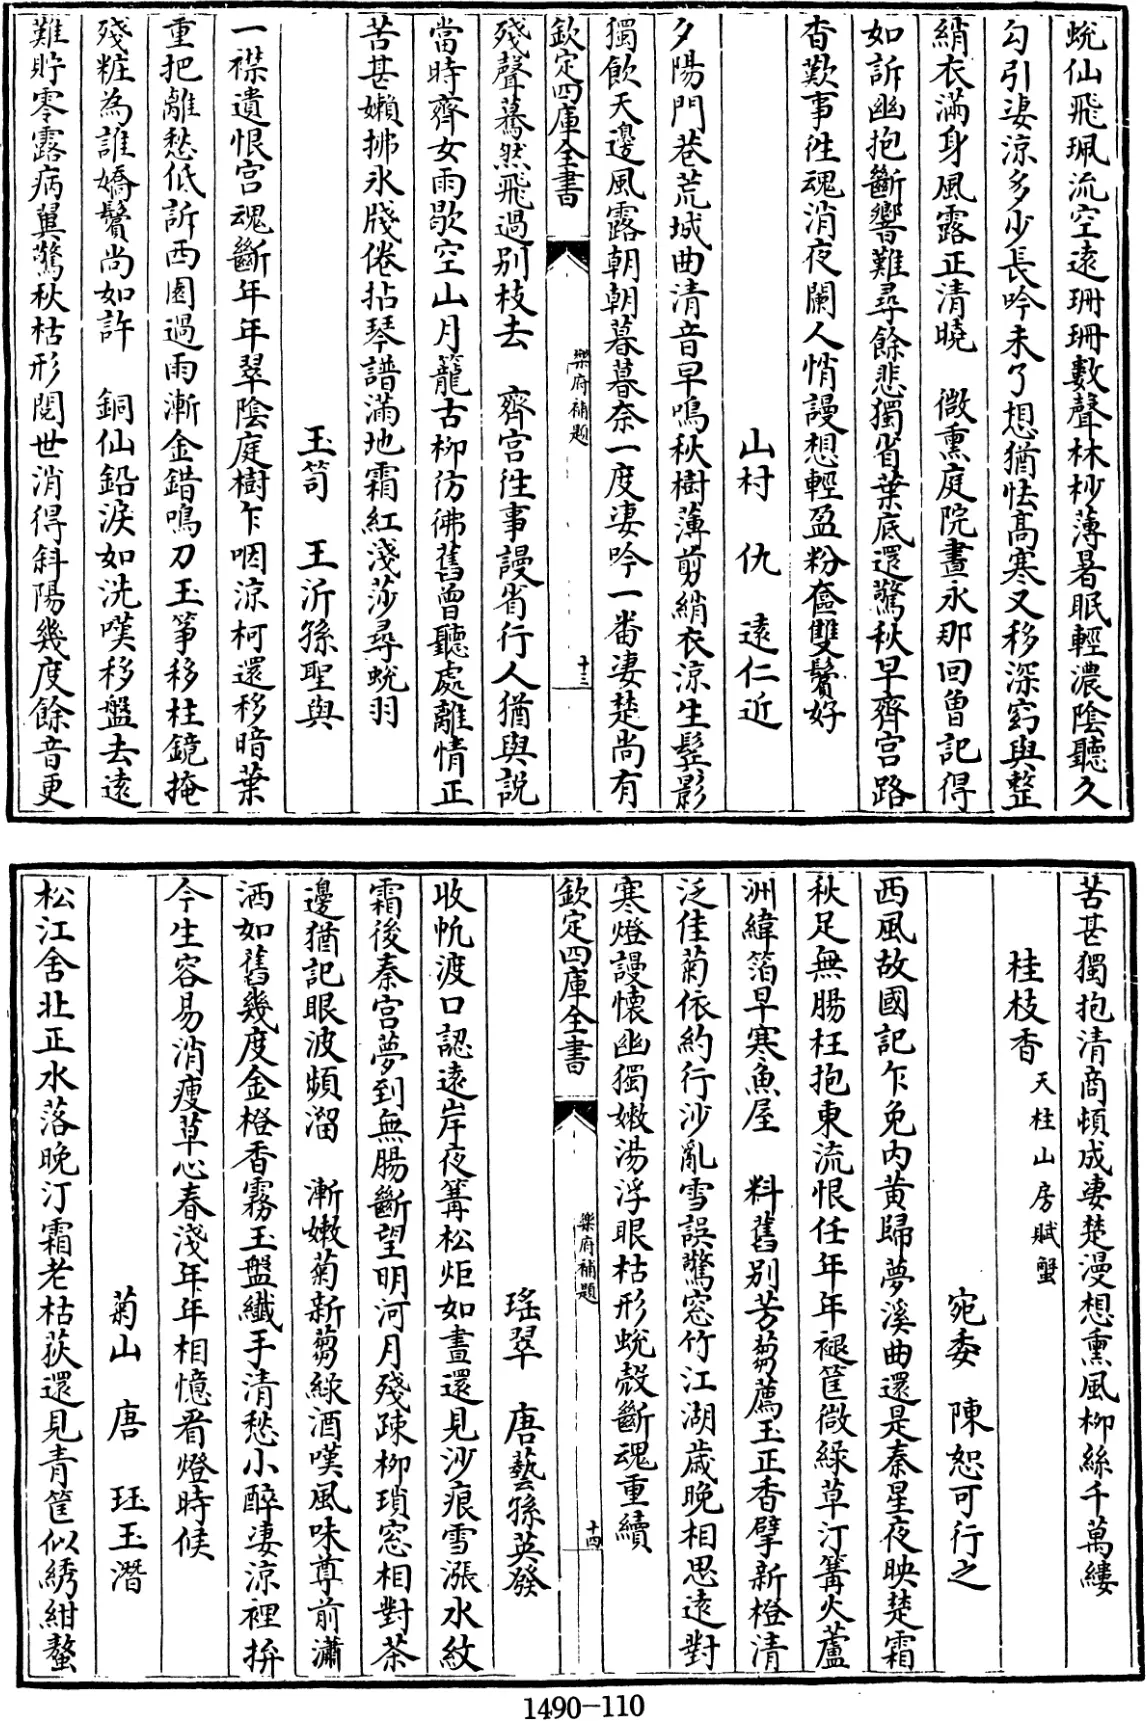 蛻仙飛珮流空遠珊珊數聲林杪薄暑眠輕濃陰聽久
勾引淒涼多少長吟未了想猶怯高寒又移深窈與整
綃衣滿身風露正清曉　微熏庭院晝永那回曽記得
如訴幽抱斷響難尋餘悲獨省葉底還驚秋早齊宮路
杳歎事往魂消夜闌人悄謾想輕盈粉奩雙鬢好
山村　仇　遠仁近
夕陽門巷荒城曲清音早鳴秋樹薄剪綃衣涼生鬂影
獨飲天邊風露朝朝暮暮奈一度淒吟一番淒楚尚有
欽定四庫全書
樂府補題
十三
殘聲驀然飛過别枝去　齊宮往事謾省行人猶與說
當時齊女雨歇空山月籠古柳彷彿舊曽聽處離情正
苦甚嬾拂氷牋倦拈琴譜滿地霜紅淺莎尋蛻羽
玉笥　王沂孫聖與
一襟遺恨宮魂斷年年翠陰庭樹乍咽涼柯還移暗葉
重把離愁低訴西園過雨漸金錯鳴刀玉箏移柱鏡掩
殘粧為誰嬌鬢尚如許　銅仙鉛淚如洗嘆移盤去遠
難貯零露病翼驚秋枯形閲世消得斜陽幾度餘音更
苦甚獨抱清商頓成淒楚漫想熏風柳絲千萬縷
桂枝香天柱山房賦蟹
宛委　陳恕可行之
西風故國記乍免内黄歸夢溪曲還是秦星夜映楚霜
秋足無腸枉抱東流恨任年年褪筐微緑草汀篝火蘆
洲緯箔早寒魚屋　料舊别芳蒭薦玉正香擘新橙清
泛佳菊依約行沙亂雪誤驚窓竹江湖歲晚相思遠對
寒燈謾懐幽獨嫩湯浮眼枯形蛻殼斷魂重續
欽定四庫全書
樂府補題
十四
瑤翠　唐藝孫英發
收帆渡口認遠岸夜篝松炬如晝還見沙痕雪漲水紋
霜後秦宮夢到無腸斷望明河月殘疎柳瑣窓相對茶
邊猶記眼波頻溜　漸嫩菊新蒭緑酒嘆風味尊前瀟
洒如舊幾度金橙香霧玉盤纖手清愁小醉淒涼裡拚
今生容易消瘦草心春淺年年相憶看燈時候
菊山　唐　珏玉潛
松江舍北正水落晚汀霜老枯荻還見青筐似綉紺螯
1490-110